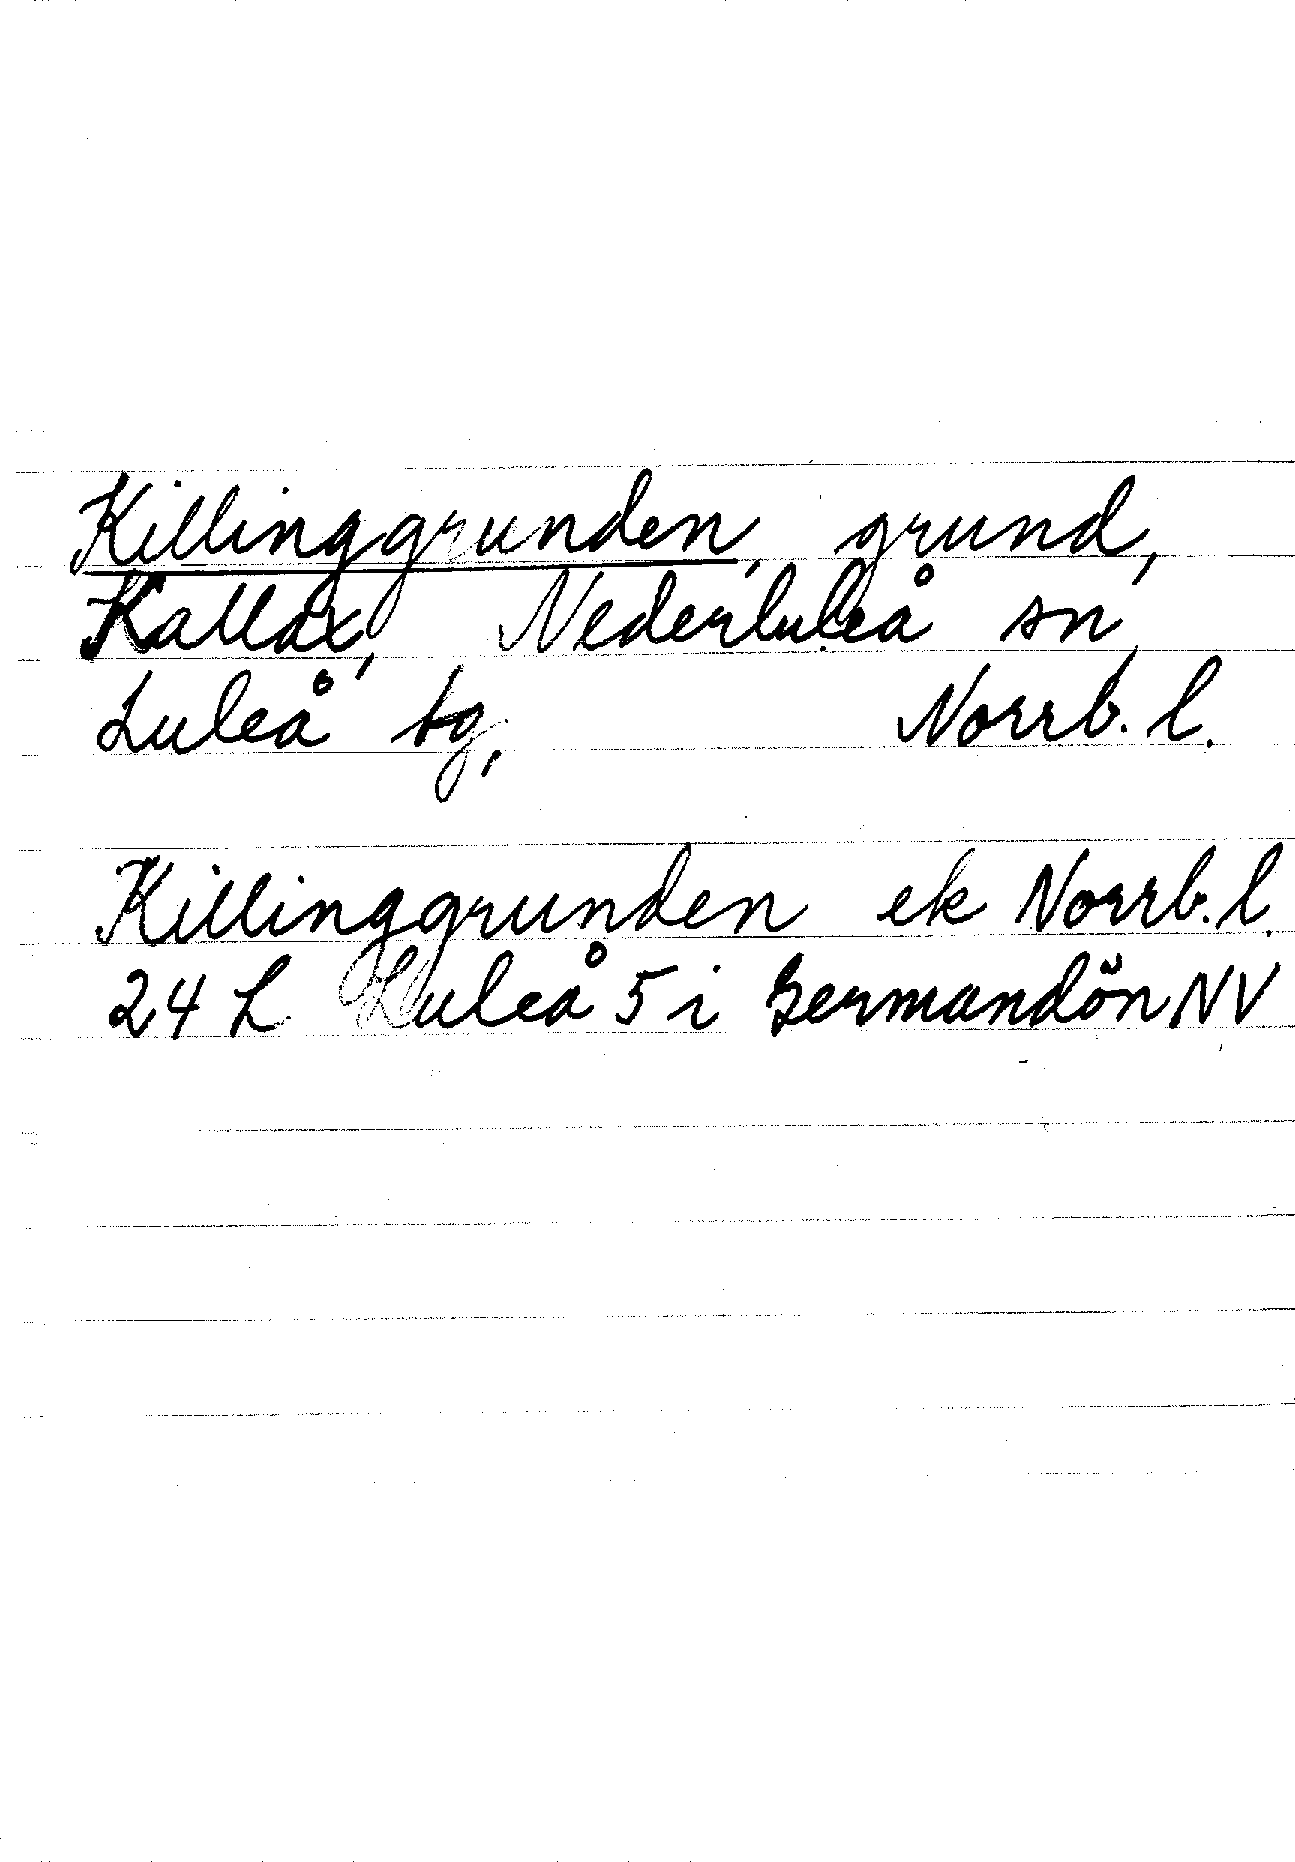 Killinggrunden, grund,
Kallax, Nederluleå sn
Luleå tg, Norrb. l.
Killinggrunden ek Norrb. l.
24 L Luleå 5 i Germandön NV